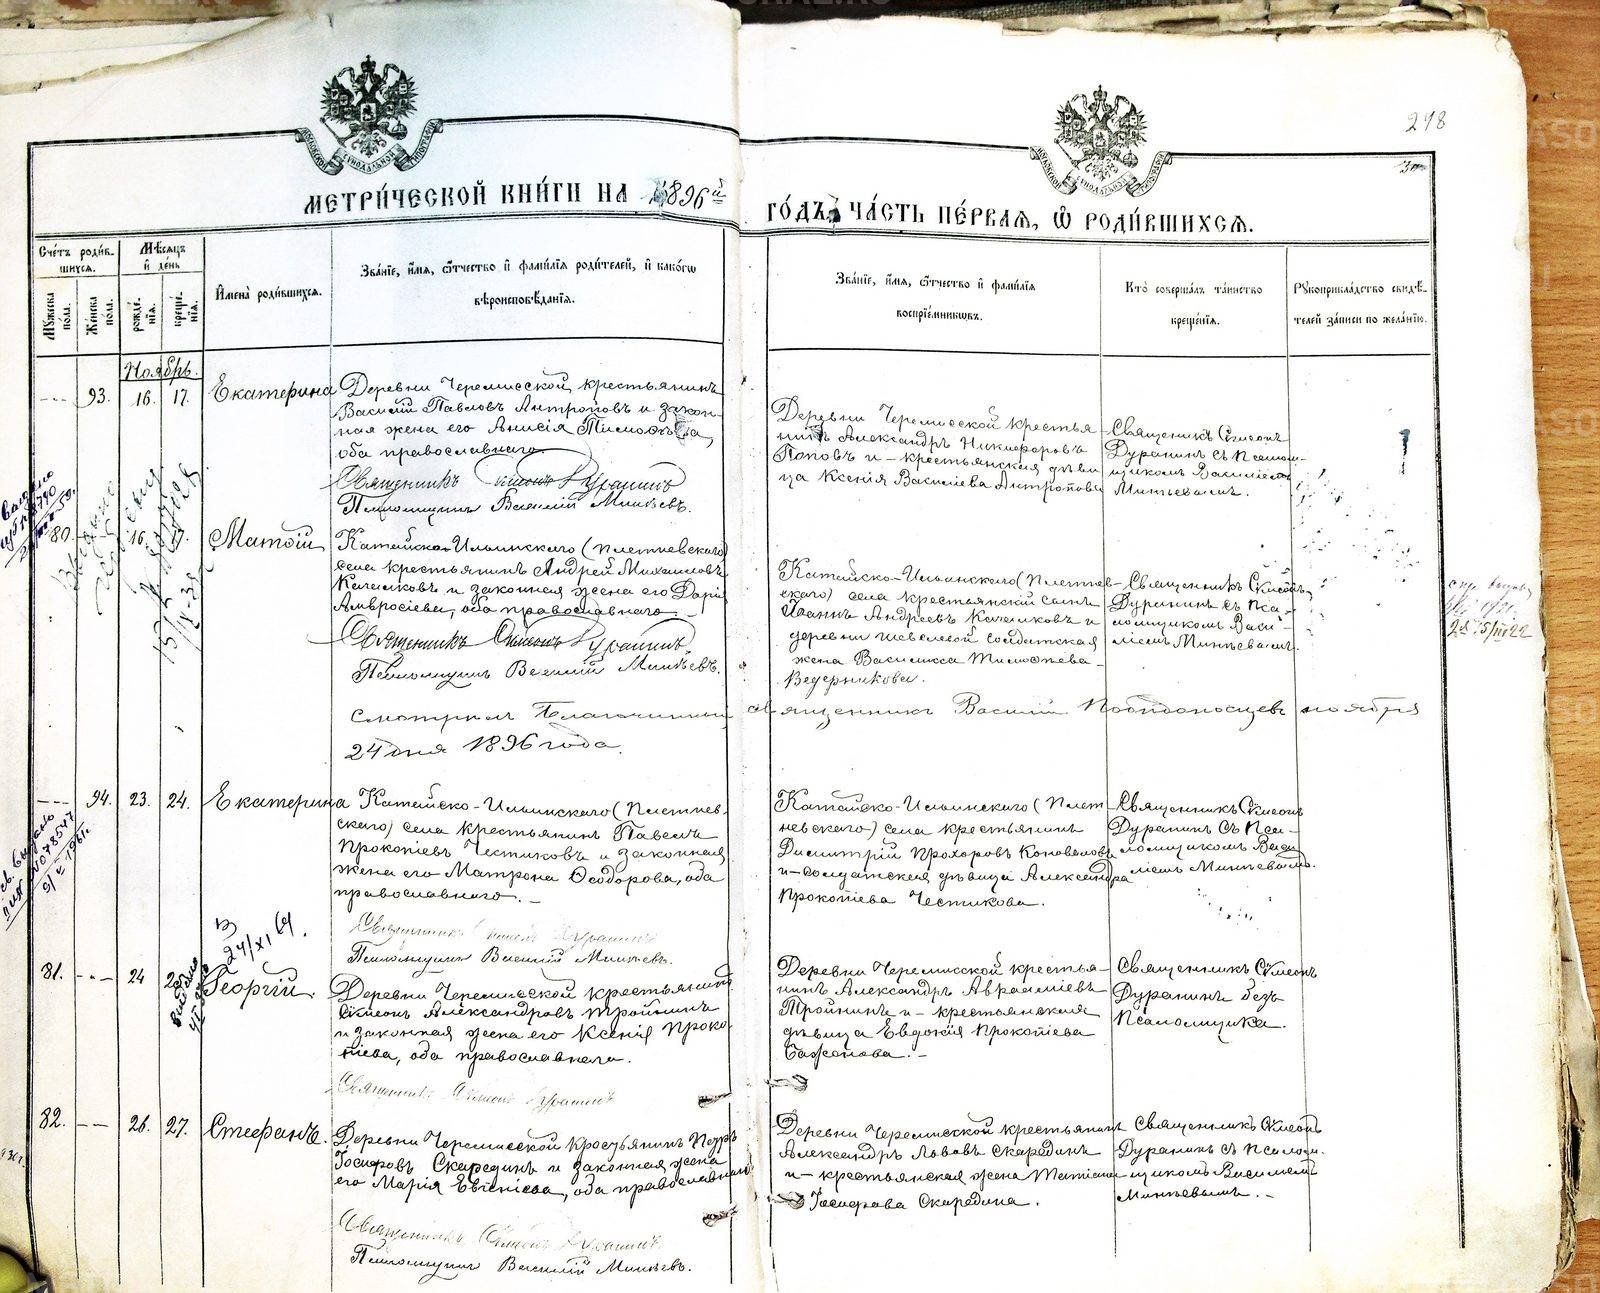 298
МЕТРИ́ЧЕСКОЙ КНИ́ГИ НА 1896й ГО́ДЪ, ЧА́СТЬ ПЕ́РВАЯ, Ѽ РОДИ́ВШИХСЯ.
Сче́тъ роди́в-
шихся.
Мꙋ́жеска по́ла.
Же́нска по́ла.
Мѣ́сяцъ и҆ де́нь
рожде́-
нїя.
креще́-
нїя.
И҆мена̀ роди́вшихся.
Зва́нїе, и҆́мя, ѻ҆́тчество и҆ фами́лїя роди́телей, и҆ како́гѡ
вѣроисповѣ́данїя.
Зва́нїе, и҆́мя, ѻ҆́тчество и҆ фами́лїя
воспрїе́мникѡвъ.
Кто̀ соверша́лъ та́инство
креще́нїя.
Рꙋкоприкла́дство свидѣ́-
телей за́писи по жела́нїю.
Ноябрь.
93. 16. 17. Екатерина
Деревни Черемисской, крестьянинъ
Василій Павловъ Антроповъ и закон-
ная жена его Анисія Тимофѣева,
оба православнаго.
Священникъ Симеонъ Дуранинъ
Псаломщикъ Василій Минѣевъ.
Деревни Черемисской крестья-
нинъ Александръ Никифоровъ
Поповъ и – крестьянская дѣви-
ца Ксенія Василіева Антропова
Священникъ Симеонъ
Дуранинъ съ Псалом-
щикомъ Василіемъ
Минѣевымъ.
80. 16. 17. Матѳій
Катайско-Ильинскаго (Плетневскаго)
села крестьянинъ Андрей Михаиловъ
Качалковъ и законная жена его Дарія
Амвросіева, оба православнаго.
Священникъ Симеонъ Дуранинъ.
Псаломщикъ Василій Минѣевъ.
Катайско-Ильинскаго (Плетнев-
скаго) села крестьянскій сынъ
Іоаннъ Андреевъ Качалковъ и
деревни Шевелевой солдатская
жена Василисса Тимофѣева
Ведерникова.
Священникъ Симеонъ
Дуранинъ съ Пса-
ломщикомъ Васи-
ліемъ Минѣевымъ.
Смотрѣлъ Благочинный священникъ Василій Побѣдоносцевъ ноября
24 дня 1896 года.
94. 23. 24. Екатерина
Катайско-Ильинскаго (Плетнев-
скаго) села крестьянинъ Павелъ
Прокопіевъ Честиковъ и законная
жена его Матрона Ѳеодорова, оба
православнаго. –
Священникъ Симеонъ Дуранинъ
Псаломщикъ Василій Минѣевъ.
Катайско-Ильинскаго (Плет-
невскаго) села крестьянинъ
Димитрій Прохоровъ Коноваловъ
и – солдатская дѣвица Александра
Прокопіева Честикова.
Священникъ Симеонъ
Дуранинъ съ Пса-
ломщикомъ Васи-
ліемъ Минѣевымъ.
24/XI 64.
81. 24 Георгій.
Деревни Черемисской крестьянинъ
Симеонъ Александровъ Тройнинъ
и законная жена его Ксенія Проко-
піева, оба православнаго.
Священникъ Симеонъ Дуранинъ
Деревни Черемисской крестья-
нинъ Александръ Авраамiевъ
Тройнинъ и – крестьянская
дѣвица Евдокія Прокопіева
Сафонова. –
Священникъ Симеонъ
Дуранинъ безъ
Псаломщика.
82. 26. 27. Стефанъ.
Деревни Черемисской крестьянинъ Петръ
Іосифовъ Скарединъ и законная жена
его Марія Евгеніева, оба православнаго
Священникъ Симеонъ Дуранинъ
Псаломщикъ Василій Минѣевъ.
Деревни Черемисской крестьянинъ
Александръ Львовъ Скарединъ
и – крестьянская жена Татіана
Іосифова Скаредина.
Священникъ Симеонъ
Дуранинъ съ Псалом-
щикомъ Василіемъ
Минѣевымъ. –